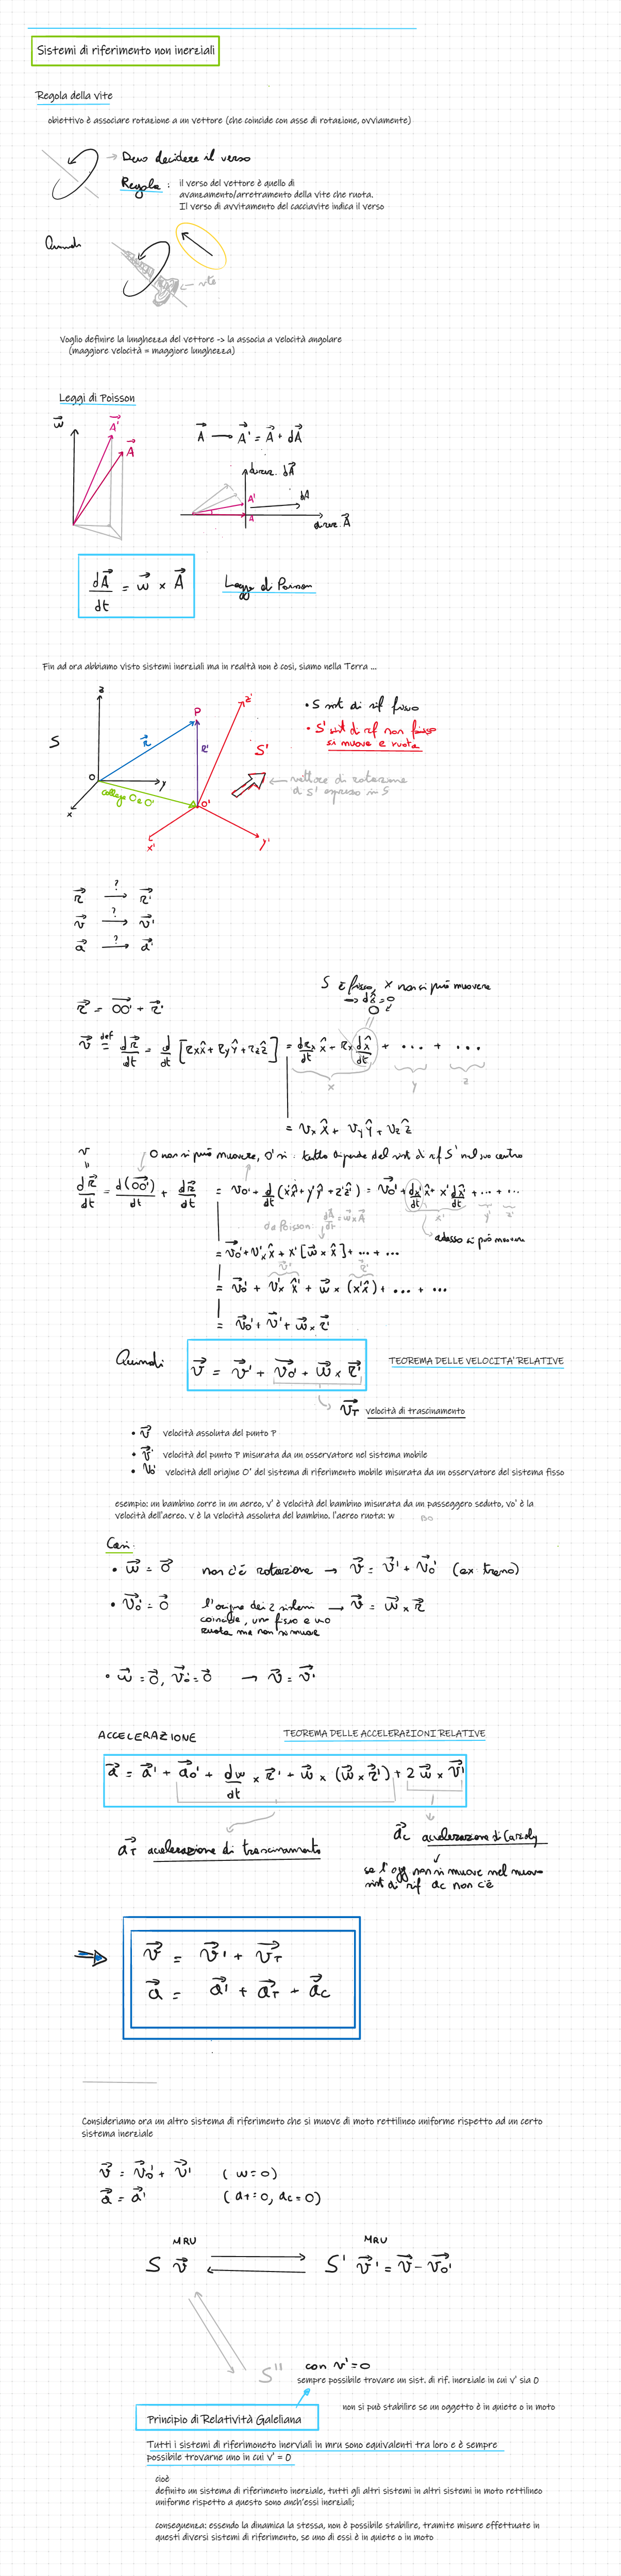 Sistemi di riferimento non inerziali
Regola della vite
obiettivo è associare rotazione a un vettore (che coincide con asse di rotazione, ovviamente)
→ Devo decidere il verso
Regola : il verso del vettore è quello di
avanzamento/arretramento della vite che ruota.
Il verso di avvitamento del cacciavite indica il verso
Quindi
← vite
Voglio definire la lunghezza del vettore -> la associa a velocità angolare
(maggiore velocità = maggiore lunghezza)
Leggi di Poisson
w⃗ A⃗' A⃗
A⃗ → A⃗' = A⃗ + dA⃗
direz. dA⃗
A' dA
A
direz. A⃗
dA⃗/dt = w⃗ × A⃗
Legge di Poisson
Fin ad ora abbiamo visto sistemi inerziali ma in realtà non è così, siamo nella Terra ...
S
z
P
z'
r⃗
r'
S'
O
y
x
collega O a O'
O'
x'
y'
• S sist di rif fisso
• S' sist di rif non fisso
si muove e ruota
← vettore di rotazione
di S' espresso in S
r⃗ →? r⃗'
v⃗ →? v⃗'
a⃗ →? a⃗'
S è fisso, x non si può muovere
→ dx̂ = 0
0
r⃗ = OO'⃗ + r⃗'
v⃗ =def dr⃗/dt = d/dt [rxx̂ + ryŷ + rzẑ] = drx/dt x̂ + rx dx̂/dt + ... + ...
x y z
= vx x̂ + vy ŷ + vz ẑ
v
=
O non si può muovere, O' si : tutto dipende dal sist di rif S' nel suo centro
dr⃗/dt = d(OO'⃗)/dt + dr⃗/dt = vo' + d/dt (x'x̂' + y'ŷ' + z'ẑ') = v⃗o' + dx'/dt x̂' + x' dx̂'/dt + ... + ...
x' y' z'
da Poisson: dA⃗/dt = w⃗ × A⃗
adesso si può muovere
= v⃗o' + v'x x̂ + x' [w⃗ × x̂] + ... + ...
v⃗' r⃗'
= v⃗o' + v'x x̂' + w⃗ × (x'x̂) + ... + ...
= v⃗o' + v⃗' + w⃗ × r⃗'
Quindi v⃗ = v⃗' + v⃗o' + w⃗ × r⃗' TEOREMA DELLE VELOCITA' RELATIVE
v⃗T velocità di trascinamento
• v⃗ velocità assoluta del punto P
• v⃗' velocità del punto P misurata da un osservatore nel sistema mobile
• vo' velocità dell origine O' del sistema di riferimento mobile misurata da un osservatore del sistema fisso
esempio: un bambino corre in un aereo, v' è velocità del bambino misurata da un passeggero seduto, vo' è la
velocità dell'aereo. v è la velocità assoluta del bambino. l'aereo ruota: w
Casi:
• w⃗ = 0⃗ non c'è rotazione → v⃗ = v⃗' + v⃗o' (ex treno)
• v⃗o' = 0⃗ l'origine dei 2 sistemi → v⃗ = w⃗ × r⃗
coincide, uno fisso e uno
ruota ma non si muove
• w⃗ = 0⃗, v⃗o' = 0⃗ → v⃗ = v⃗'
ACCELERAZIONE TEOREMA DELLE ACCELERAZIONI RELATIVE
a⃗ = a⃗' + a⃗o' + dw/dt × r⃗' + w⃗ × (w⃗ × r⃗') + 2 w⃗ × v⃗'
a⃗T accelerazione di trascinamento
a⃗c accelerazione di Corioly
se l'ogg non si muove nel nuovo
sist di rif ac non c'è
v⃗ = v⃗' + v⃗T
a⃗ = a⃗' + a⃗T + a⃗c
Consideriamo ora un altro sistema di riferimento che si muove di moto rettilineo uniforme rispetto ad un certo
sistema inerziale
v⃗ = v⃗o' + v⃗' ( w=0)
a⃗ = a⃗' ( aT=0, ac=0)
MRU MRU
S v⃗ S' v⃗' = v⃗ - v⃗o'
S'' con v'=0
sempre possibile trovare un sist. di rif. inerziale in cui v' sia 0
non si può stabilire se un oggetto è in quiete o in moto
Principio di Relatività Galeliana
Tutti i sistemi di riferimoneto inerviali in mru sono equivalenti tra loro e è sempre
possibile trovarne uno in cui v' = 0
cioè
definito un sistema di riferimento inerziale, tutti gli altri sistemi in altri sistemi in moto rettilineo
uniforme rispetto a questo sono anch'essi inerziali;
conseguenza: essendo la dinamica la stessa, non è possibile stabilire, tramite misure effettuate in
questi diversi sistemi di riferimento, se uno di essi è in quiete o in moto